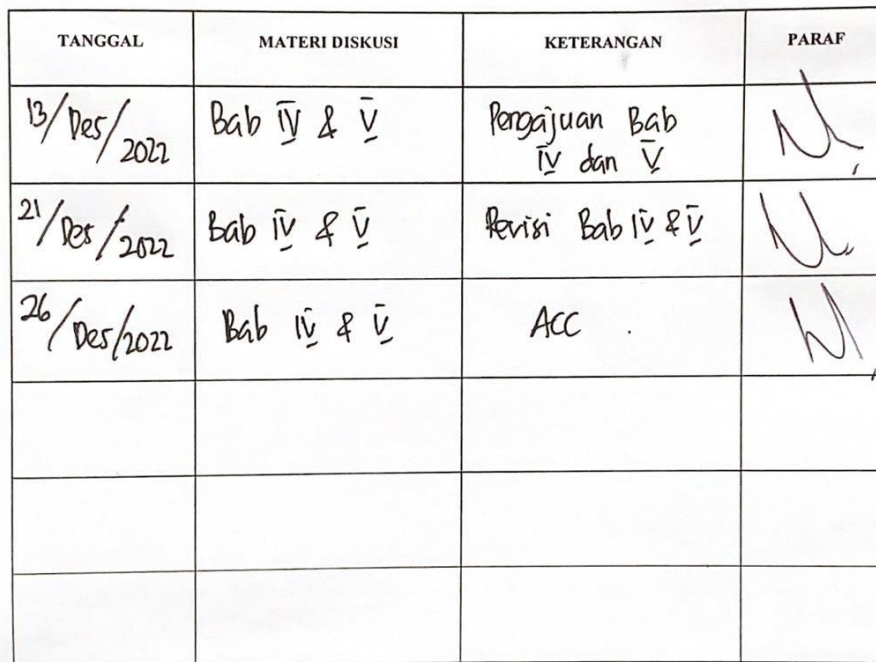 TANGGAL MATERI DISKUSI KETERANGAN PARAF
13/Des/2022 Bab IV & V Pengajuan Bab
IV dan V
21/Des/2022 Bab IV & V Revisi Bab IV & V
26/Des/2022 Bab IV & V ACC